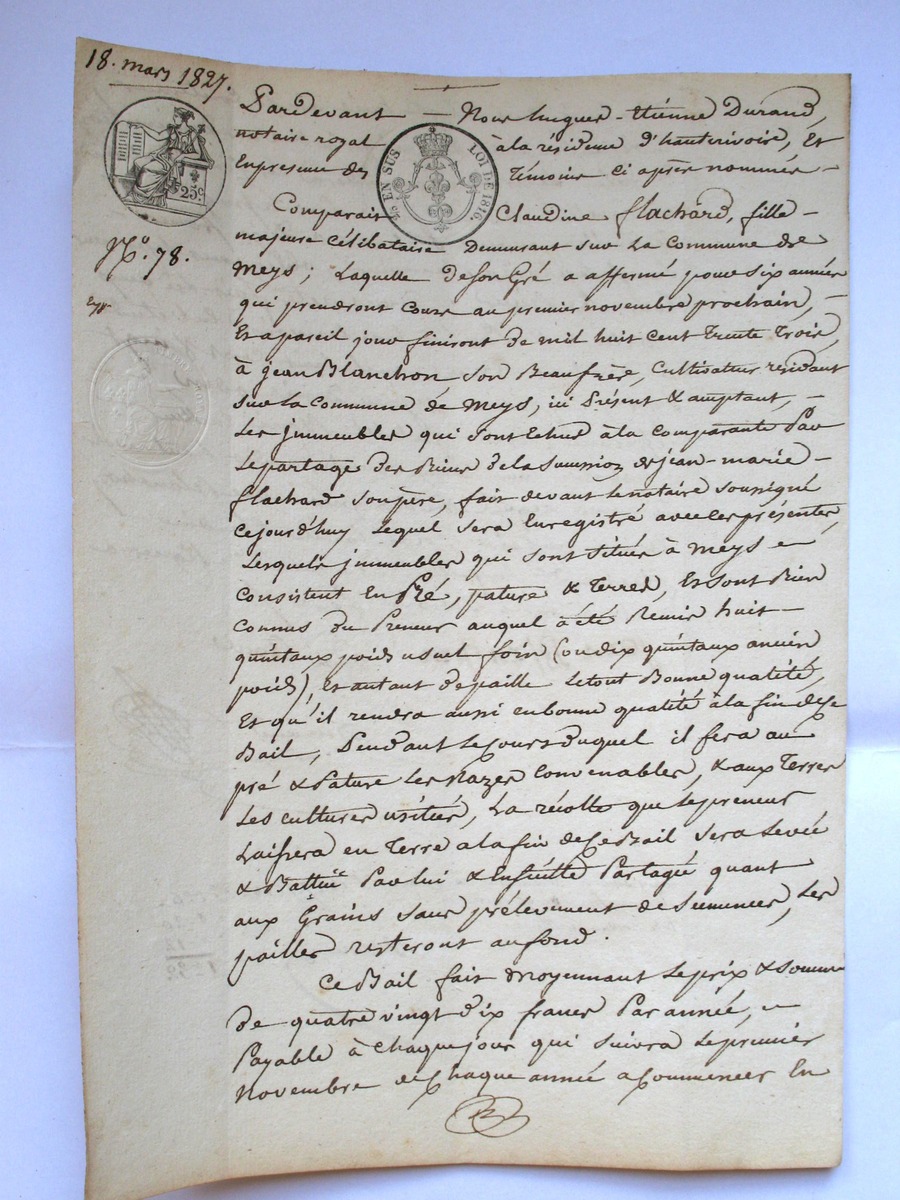 18. mars 1827.
25c
EN SUS LOI DE 1816.
N.º 78.
Pardevant — Nous hugues-étiénne Durand,
notaire royal à la résidence d'hauterivoire, Et
En presence des Témoins ci après nommés —
Comparait Claudine flachard, fille —
majeure célibataire Demeurant sur La Commune de
Meys ; Laquelle de son Gré a affermé pour six années
qui prendront Cours au premier novembre prochain, —
Et a pareil jour finiront de mil huit cent Trente Trois,
à jean Blanchon son Beaufrère, Cultivateur residant
sur la Commune de Meys, ici Présent & acceptant, —
Les jmmeubles qui sont Echus à la comparante Par
Le partage des Biens de la succession de jean-marie —
flachard son père, fait devant le notaire soussigné
Cejourd'huy Lequel sera Enregistré avec les présentes,
Lesquels jmmeubles qui sont situés à Meys
Consistent En Pré, pature & Terres, Et sont Bien
Connus du Preneur auquel à été Remis huit —
quintaux poids usuel foin (ou dix quintaux ancien
poids), Et autant de paille Le tout Bonne qualité,
Et qu'il rendra aussi en bonne qualité à la fin de Ce
Bail, Pendant Le Cours Duquel il fera au
pré & Pature Les Razes Convenables, & aux Terres
Les cultures usitées, La récolte que Le preneur
Laissera en Terre a la fin de Ce Bail sera Levée
& Battue Par lui & Ensuitte Partagée quant
aux Grains sans prélevement de Semences, Les
pailles resteront au fond.
Ce Bail fait Moyennant Le prix & somme
de quatre vingt dix francs Par année,
Payable à Chaque jour qui suivra Le premier
Novembre de Chaque année a Commencer En